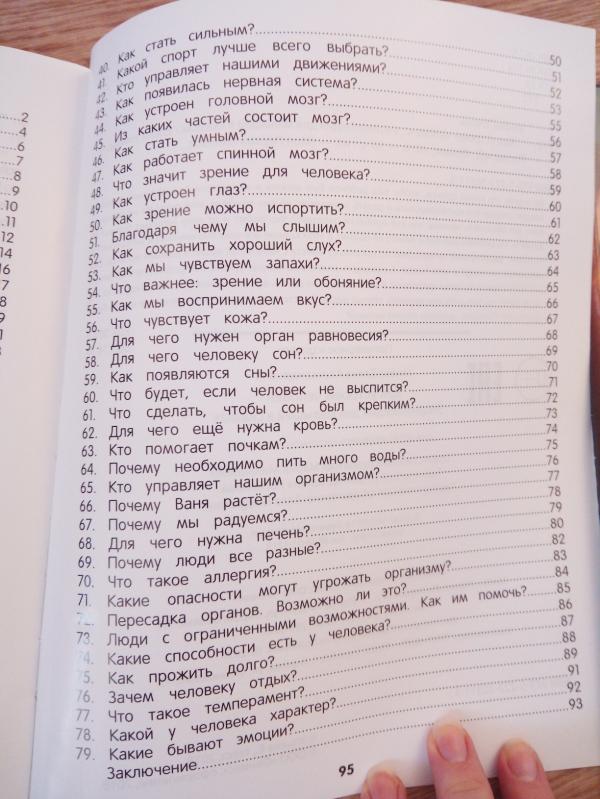 2
4
6
7
8
9
10
11
12
14
16
7
8
9
1
40. Как стать сильным? 50
41. Какой спорт лучше всего выбрать? 51
42. Кто управляет нашими движениями? 52
43. Как появилась нервная система? 53
44. Как устроен головной мозг? 55
45. Из каких частей состоит мозг? 56
46. Как стать умным? 57
47. Как работает спинной мозг? 58
48. Что значит зрение для человека? 59
49. Как устроен глаз? 60
50. Как зрение можно испортить? 61
51. Благодаря чему мы слышим? 62
52. Как сохранить хороший слух? 63
53. Как мы чувствуем запахи? 64
54. Что важнее: зрение или обоняние? 65
55. Как мы воспринимаем вкус? 66
56. Что чувствует кожа? 67
57. Для чего нужен орган равновесия? 68
58. Для чего человеку сон? 69
59. Как появляются сны? 70
60. Что будет, если человек не выспится? 71
61. Что сделать, чтобы сон был крепким? 72
62. Для чего ещё нужна кровь? 73
63. Кто помогает почкам? 74
64. Почему необходимо пить много воды? 75
65. Кто управляет нашим организмом? 76
66. Почему Ваня растёт? 77
67. Почему мы радуемся? 78
68. Для чего нужна печень? 79
69. Почему люди все разные? 80
70. Что такое аллергия? 82
71. Какие опасности могут угрожать организму? 83
72. Пересадка органов. Возможно ли это? 84
73. Люди с ограниченными возможностями. Как им помочь? 85
74. Какие способности есть у человека? 86
75. Как прожить долго? 87
76. Зачем человеку отдых? 88
77. Что такое темперамент? 89
78. Какой у человека характер? 91
79. Какие бывают эмоции? 92
Заключение 93
95